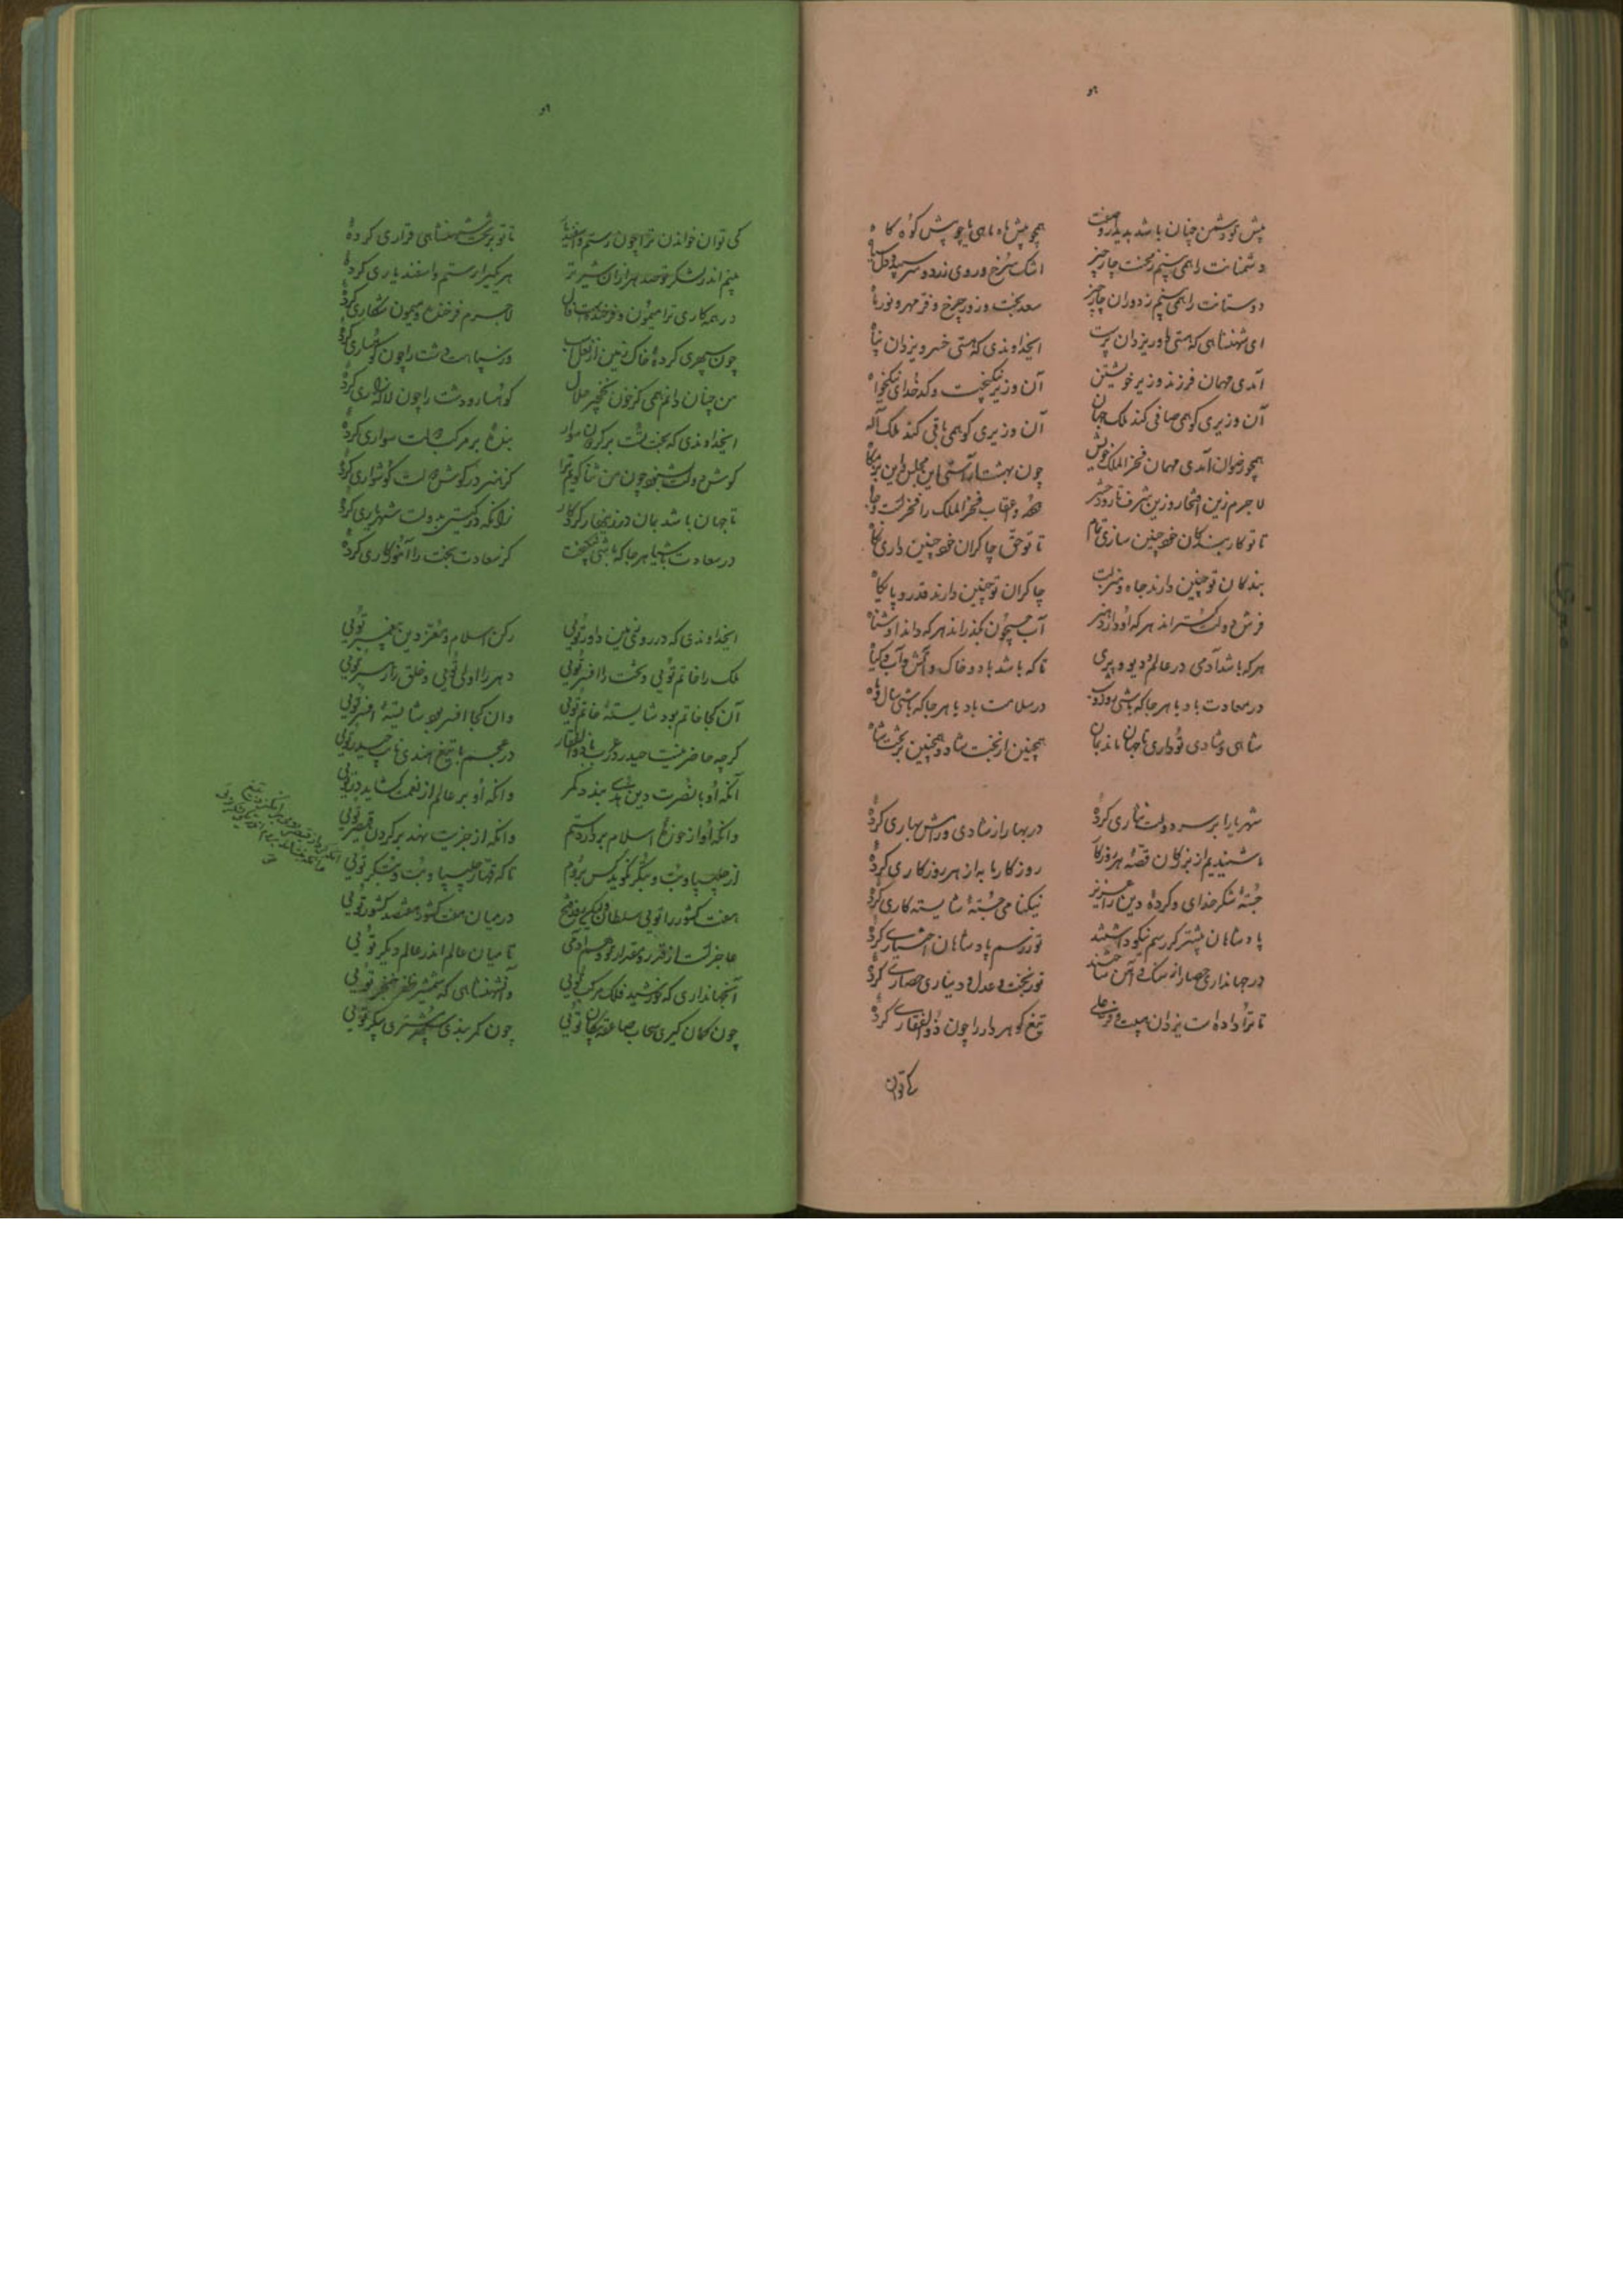 هو
پیش تو دشمن چنان باشد بدیدار و صفت همچو پیش ماه ماهی یا چو پیش کوه کاه
دشمنانت را همی بینم ز محنت چار چیز اشک سرخ و روی زرد و سر سپید و دل سیاه
دوستانت را همی بینم ز دوران چار چیز سعد بخت و زور چرخ و فر مهر و نور ماه
ای شهنشاهی که هستی داور یزدان پرست ایخداوندی که هستی خسرو یزدان پناه
آمدی مهمان فرزند وزیر خویشتن آن وزیر نیکبخت و کدخدای نیکخواه
آن وزیری کو همی صافی کند ملک جهان آن وزیری کو همی باقی کند ملک آله
همچو رضوان آمدی مهمان فخر الملک خویش چون بهشت آراستی این مجلس و این بزمگاه
لاجرم زین افتخار و زین شرف تا روز حشر عقاب فخر الملک را فخر است و جاه
تا تو کار بندگان خود چنین سازی تمام تا تو حق چاکران خود چنین داری نگاه
بندگان تو چنین دارند جاه و منزلت چاکران تو چنین دارند قدر و پایگاه
فرش دولت گستراند هر که او داند هنر آب جیحون بگذراند هر که داند آشناه
هر که باشد آدمی در عالم و دیو و پری تا که باشد باد و خاک و آتش و آب و گیاه
در سعادت باد با هر جا که باشی در سلامت باد با هر جا که باشی سال و ماه
شاهی و شادی تو داری تا جهان ماند بمان همچنین از بخت شاد و همچنین بر تخت شاه
شهریارا بر سر دولت نثاری کرده در بهار از شادی و رامش بهاری کرده
ما شنیدیم از بزرگان قصه هر روزگار روزگار ما به از هر روزگاری کرده
جسته شکر خدای و کرده دین را عزیز نیکنامی جسته شایسته کاری کرده
پادشاهان پیشتر گر رسم نیکو داشتند تو ز رسم پادشاهان اختیاری کرده
در جهانداری حصار از سنگ و آهن ساختند تو ز بخت و عدل و دینداری حصاری کرده
تا ترا داده است یزدان هیبت و فر علی تیغ گوهر دار را چون ذو الفقاری کرده
کی توان
هو
کی توان خواندن ترا چون رستم و اسفندیار تا تو بر تخت شهنشاهی قراری کرده
بینم اندر لشکر تو صد هزاران شیر نر هر یکی را رستم و اسفندیاری کرده
در همه کاری ترا میمون و فرخنده است فال لاجرم فرخنده و میمون شکاری کرده
چون سپهری کرده خاک زمین از نعل اسب وز سپاهت دشت را چون کوهساری کرده
من چنان دانم همی کز خون نخجیر حلال کوهسار و دشت را چون لاله زاری کرده
ایخداوندی که بختت بر گردون سوار بنده بر مرکب دولت سواری کرده
گوش دولت نشنود چون من ثنا گوئی ترا کز هنر در گوش دولت گوشواری کرده
تا جهان باشد بمان در زینهار کردگار زانکه در گیتی بدولت شهریاری کرده
در سعادت بادیا هر جا که باشی نیکبخت کز سعادت بخت را آموزگاری کرده
ایخداوندی که در روی زمین داور توئی رکن اسلام و معز دین پیغمبر توئی
ملک را خاتم توئی و تخت را افسر توئی دهر را اول توئی و خلق را سرور توئی
آن کجا خاتم بود شایسته خاتم توئی وان کجا افسر بود شایسته افسر توئی
گر چه حاضر نیست حیدر در عرب با ذو الفقار در عجم با تیغ هندی نایب حیدر توئی
آنکه او با نصرت دین هدی بندد کمر وانکه او بر عالم از نعمت گشاید در توئی
وانکه او از حوزه اسلام بردارد ستم وانکه از جزیت نهد بر گردن قیصر توئی
از چلیپا و بت و بتگر نگوید کس بروم تا که قهار چلیپا و بت و بتگر توئی
هفت کشور را توئی سلطان و لیکن روز فتح در میان هفت کشور هفتصد کشور توئی
عاجز است از قدر و مقدار تو وهم آدمی تا میان عالم اندر عالم دیگر توئی
آنجهانداری که خورشید فلک مرکب توئی وآنشهنشاهی که شمشیر ظفر خنجر توئی
چون کمان گیری سحاب صاعقه پیکان توئی چون کمر بندی سپهر مشتری پیکر توئی